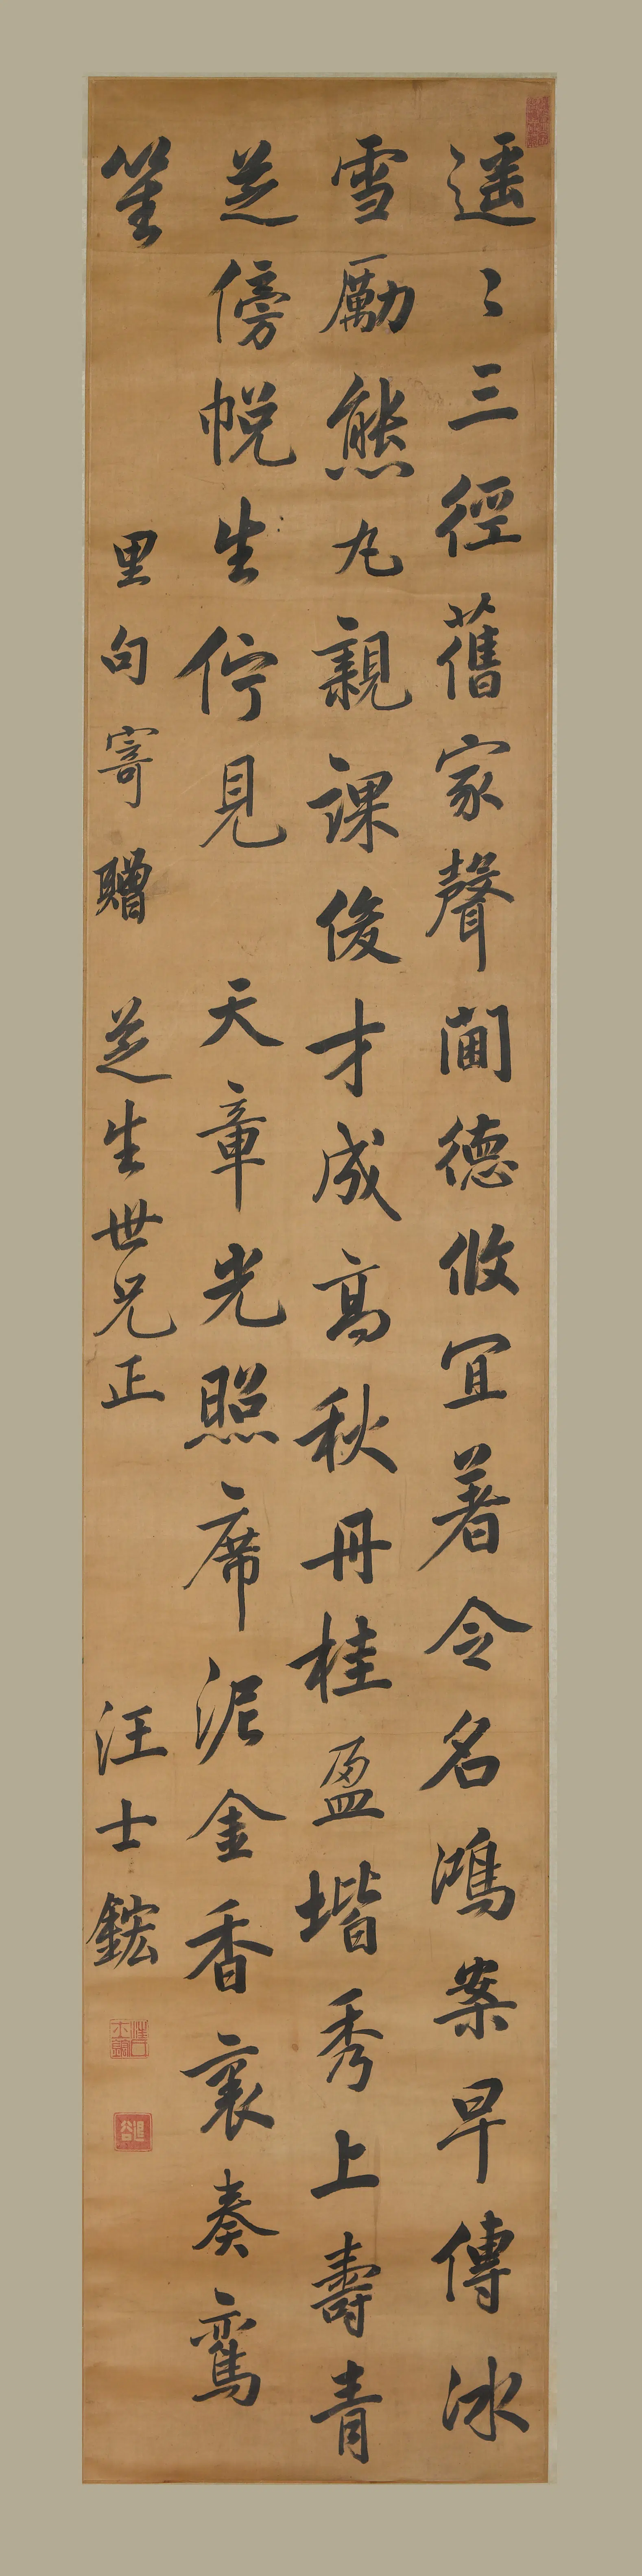 遥〻三徑舊家聲閫德攸宜著令名鴻案早傳冰
雪勵熊丸親課俊才成高秋丹桂盈堦秀上壽青
芝傍帨生佇見天章光照席泥金香裏奏鸞
笙
里句寄贈芝生世兄正
汪士鋐